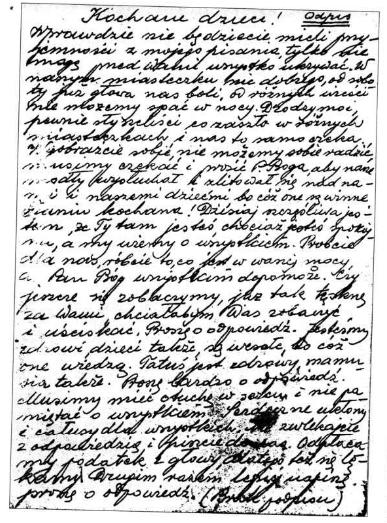 Kochane dzieci! Odpis
Wprawdzie nie będziecie mieli przy-
jemności z mojego pisania, tylko nie
mogę przed Wami wszystko ukrywać. W
naszym miasteczku nic dobrego, od soboty
ty już głowa nas boli, od różnych wieści
nie możemy spać w nocy. Drodzy moi,
pewnie słyszeliście co zaszło w różnych
miasteczkach i nas to samo czeka.
wyobraźcie sobie, nie możemy sobie radzić,
musimy czekać i prosić P. Boga, aby nasze
modły wysłuchał i zlitował się nad na-
mi i naszemi dziećmi bo cóż one są winne
kochana! Dzisiaj szczęśliwa jes-
tem, że Ty tam jesteś chociaż jesteś spokoj-
na, a my wiemy o wszystkiem. Róbcie
dla nas, róbcie to co jest w waszej mocy
a Pan Bóg wszystkim dopomoże. Czy
jeszcze się zobaczymy, już tak tęsknię
za Wami, chciałabym Was zobaczyć
i uściskać. Proszę o odpowiedź. Jesteśmy
zdrowi dzieci także, są wesołe, bo cóż
one wiedzą. Tatuś jest zdrowy, mamu-
sia także. Proszę bardzo o odpowiedź.
Musimy mieć otuchę w sercu i nie pa-
miętać o wszystkiem. Serdeczne ukłony
i całusy dla wszystkich. zwlekajcie
z odpowiedzią i Odpłaca-
my podatek z głowy,
Drugim razem lepiej napiszę
proszę o odpowiedź. (Brak podpisu)